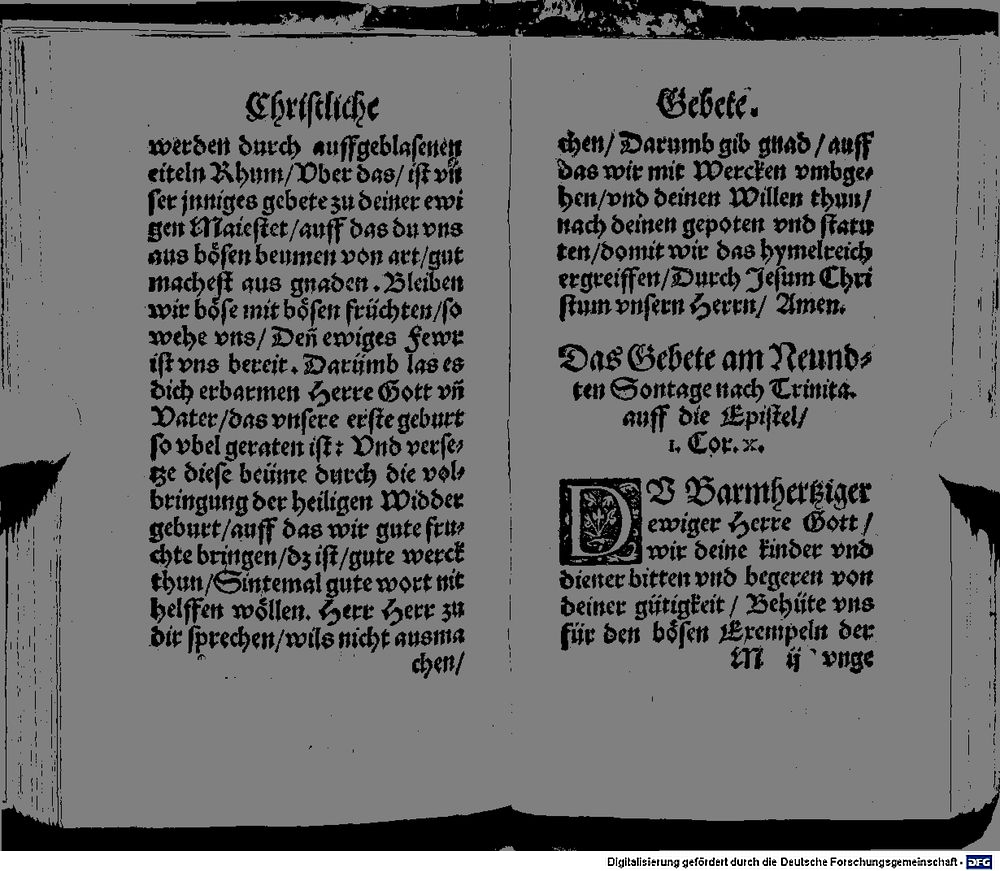 Christliche
werden durch auffgeblasenen
eiteln Rhum/Vber das/ ist vñ
ser jnniges gebete zu deiner ewi
gen Maiestet/auff das du vns
aus bösen beumen von art/gut
machest aus gnaden. Bleiben
wir böse mit bösen früchten/so
wehe vns/ Deñ ewiges Fewr
ist vns bereit. Darümb las es
dich erbarmen Herre Gott vñ
Vater/das vnsere erste geburt
so vbel geraten ist: Vnd verse⸗
tze diese beüme durch die vol⸗
bringung der heiligen Widder
geburt/auff das wir gute fru⸗
chte bringen/dz ist/gute werck
thun/Sintemal gute wort nit
helffen wöllen. Herr Herr zu
dir sprechen/wils nicht ausma
chen/
Gebete.
chen/Darumb gib gnad/auff
das wir mit Wercken vmbge⸗
hen/vnd deinen Willen thun/
nach deinen gepoten vnd statu
ten/domit wir das hymelreich
ergreiffen/Durch Jesum Chri
stum vnsern Herrn/ Amen.
Das Gebete am Neund⸗
ten Sontage nach Trinita.
auff die Epistel/
1. Cor. x.
DV Barmhertziger
ewiger Herre Gott/
wir deine kinder vnd
diener bitten vnd begeren von
deiner gütigkeit/ Behüte vns
für den bösen Exempeln der
M ij vnge
Digitalisierung gefördert durch die Deutsche Forschungsgemeinschaft - DFG